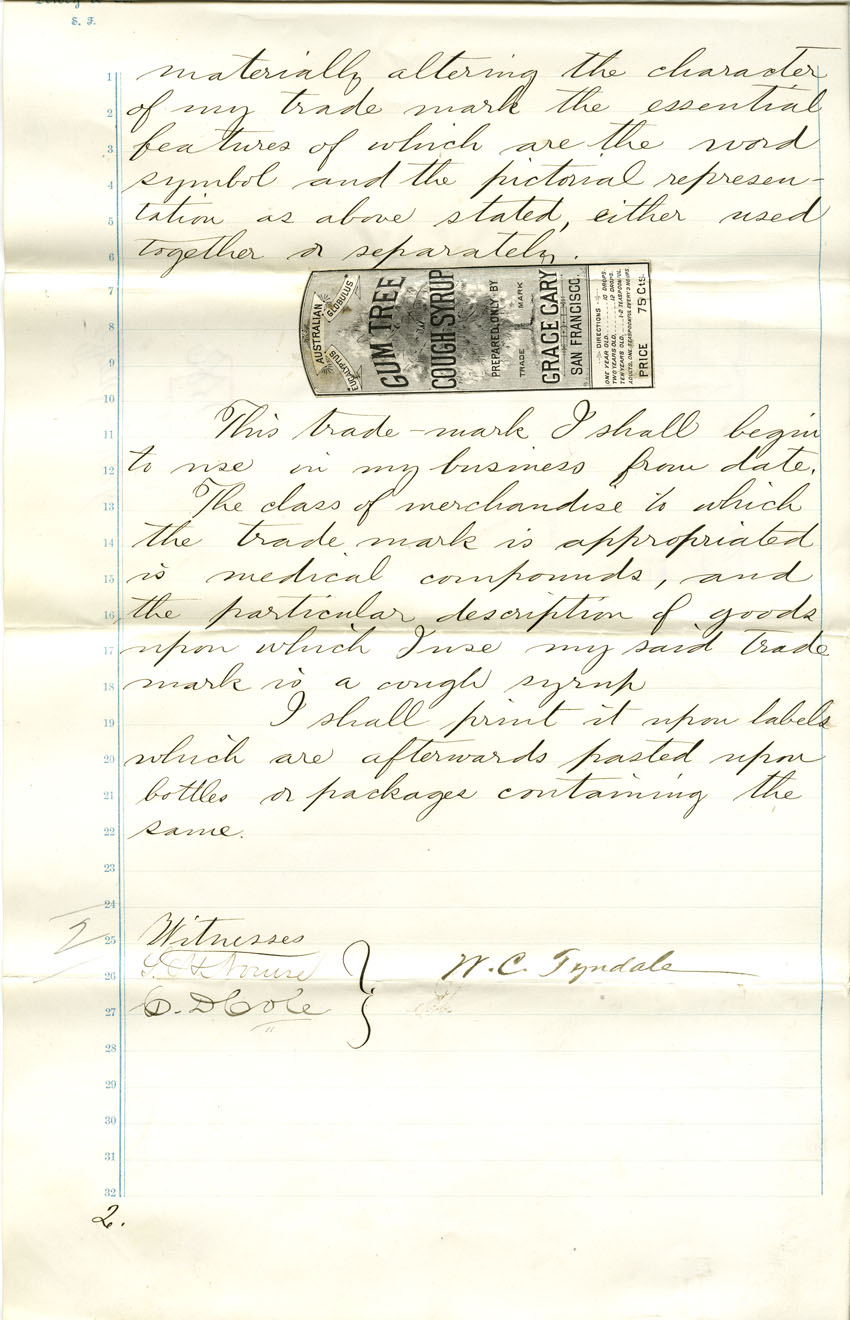 S. F.
materially altering the character
of my trade mark the essential
features of which are the word
symbol and the pictorial represen-
tation as above stated, either used
together or separately.
AUSTRALIAN
EUCALYPTUS GLOBULUS
GUM TREE
COUGH SYRUP
PREPARED ONLY BY
TRADE MARK
GRACE CARY
SAN FRANCISCO.
DIRECTIONS
ONE YEAR OLD 10 DROPS.
TWO YEARS OLD 12 DROPS.
TEN YEARS OLD 1-2 TEASPOONFUL
ADULTS, ONE TEASPOONFUL EVERY 3 HOURS
PRICE 75 Cts.
This trade-mark I shall begin
to use in my business from date.
The class of merchandise to which
the trade mark is appropriated
is medical compounds, and
the particular description of goods
upon which I use my said trade
mark is a cough syrup
I shall print it upon labels
which are afterwards pasted upon
bottles or packages containing the
same.
Witnesses
W. C. Tyndale
C. D. Cole
1
2
3
4
5
6
7
8
9
10
11
12
13
14
15
16
17
18
19
20
21
22
23
24
25
26
27
28
29
30
31
32
2.